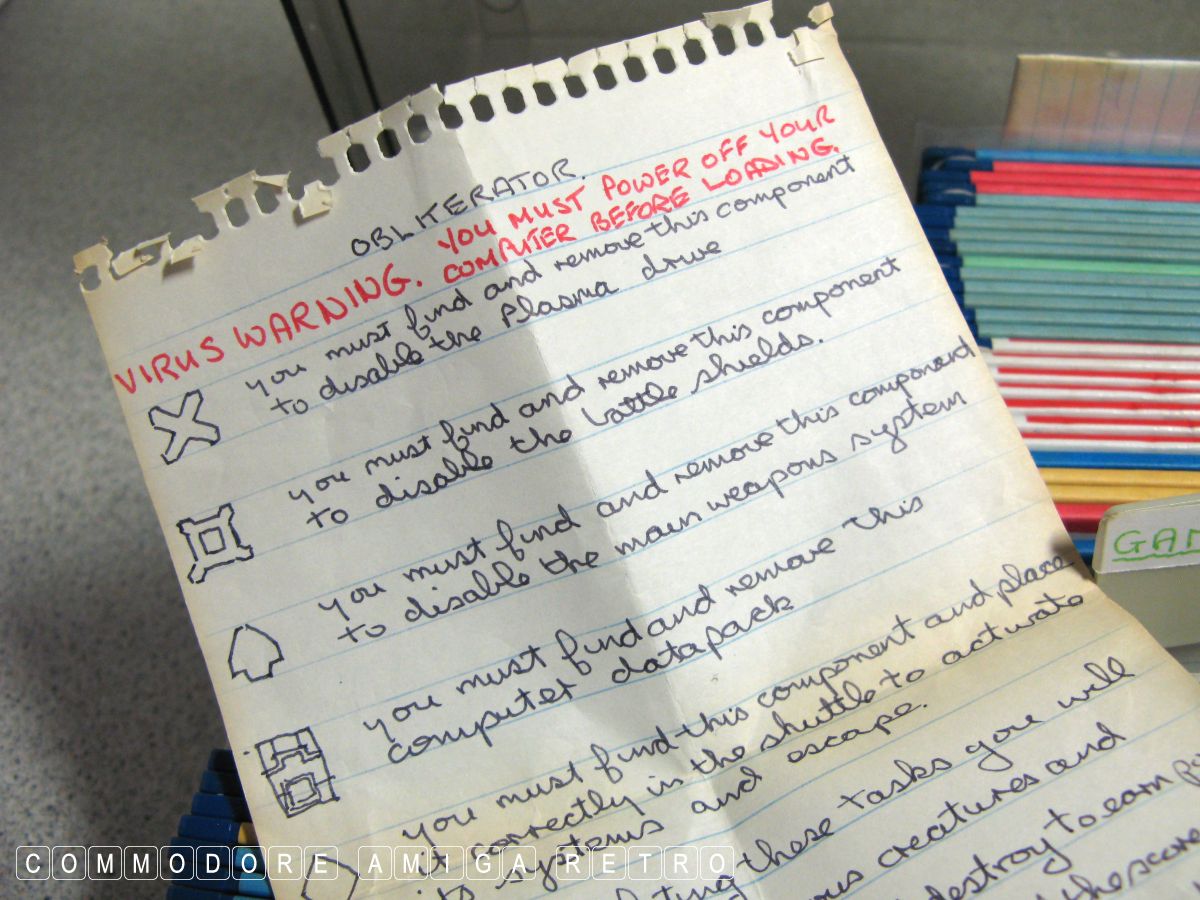 OBLITERATOR.
VIRUS WARNING. YOU MUST POWER OFF YOUR
COMPUTER BEFORE LOADING.
you must find and remove this component
to disable the Plasma drive
you must find and remove this component
to disable the battle shields.
you must find and remove this component
to disable the main weapons system
you must find and remove this
computer datapack
you must find this component and place
it correctly in the shuttle to activate
its systems and escape.
these tasks you will
creatures and
destroy to earn
GAM
COMMODORE AMIGA RETRO